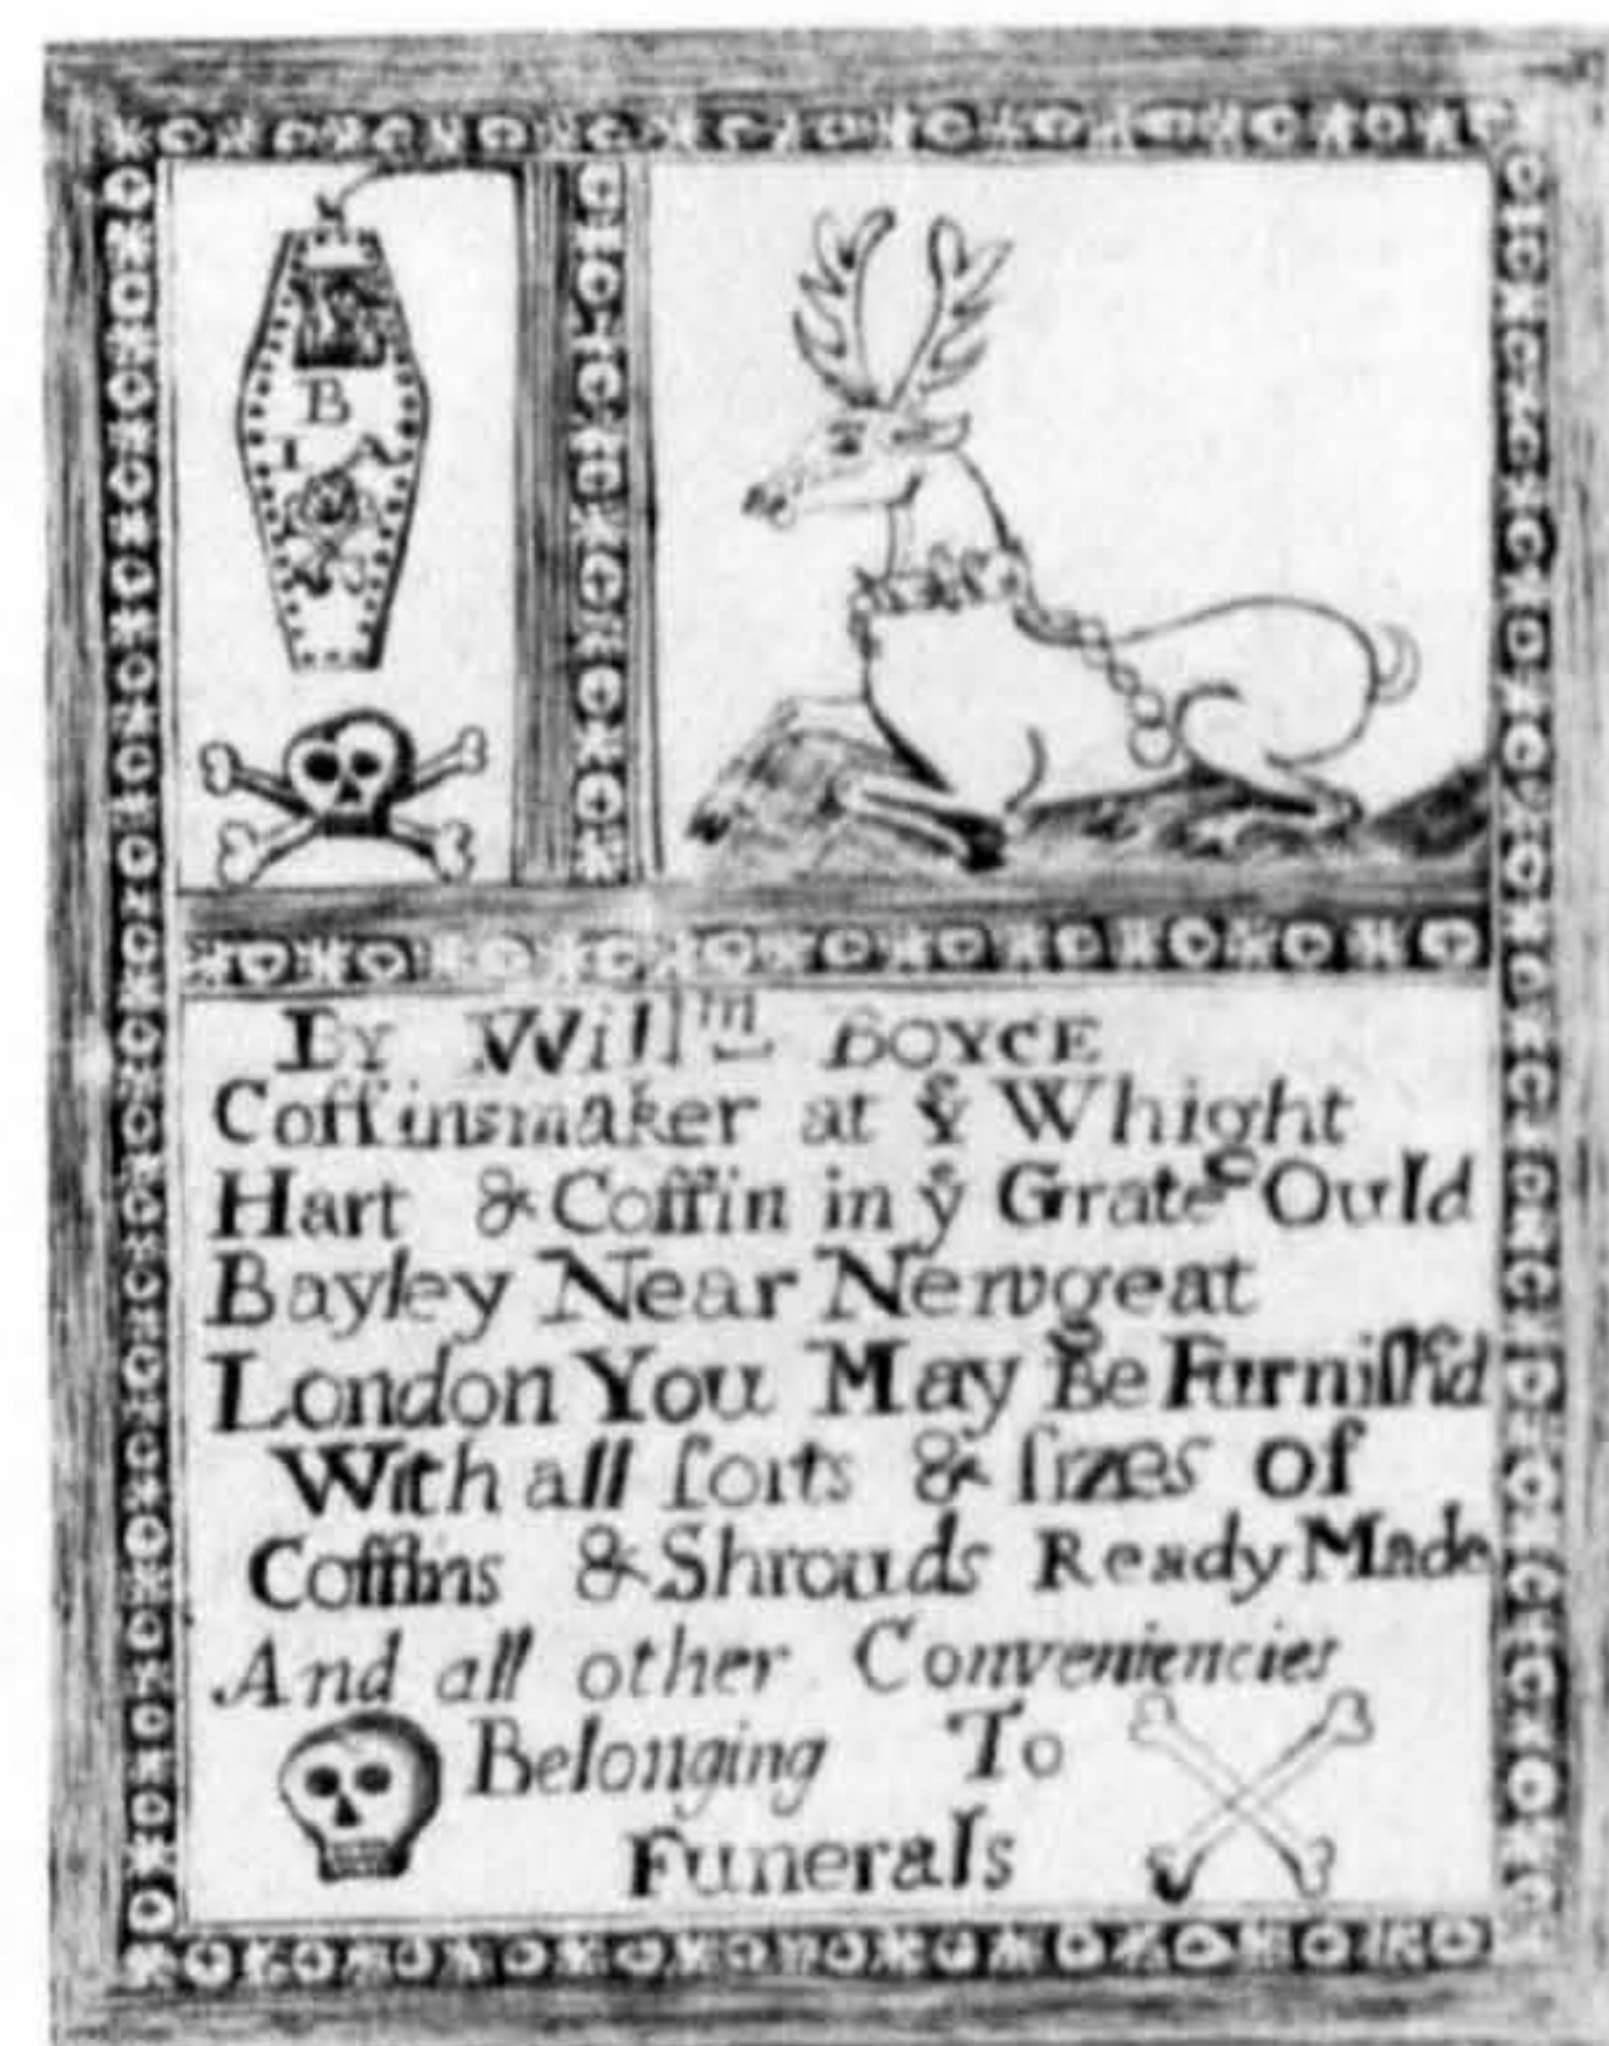 B
I A
By Willᵐ BOYCE
Coffinsmaker at yᵉ Whight
Hart & Coffin in yᵉ Grate Ould
Bayley Near Newgeat
London You May Be Furniſh'd
With all ſorts & ſizes of
Coffins & Shrouds Ready Made
And all other Conveniencies
Belonging To
Funerals